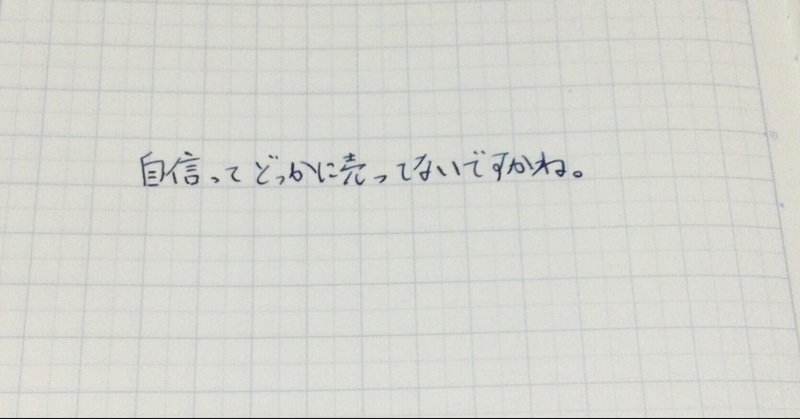 自信ってどっかに売ってないですかね。